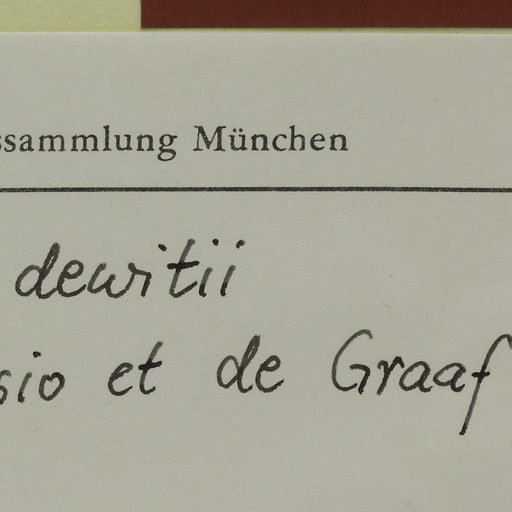 ssammlung München
dewitii
sio et de Graaf